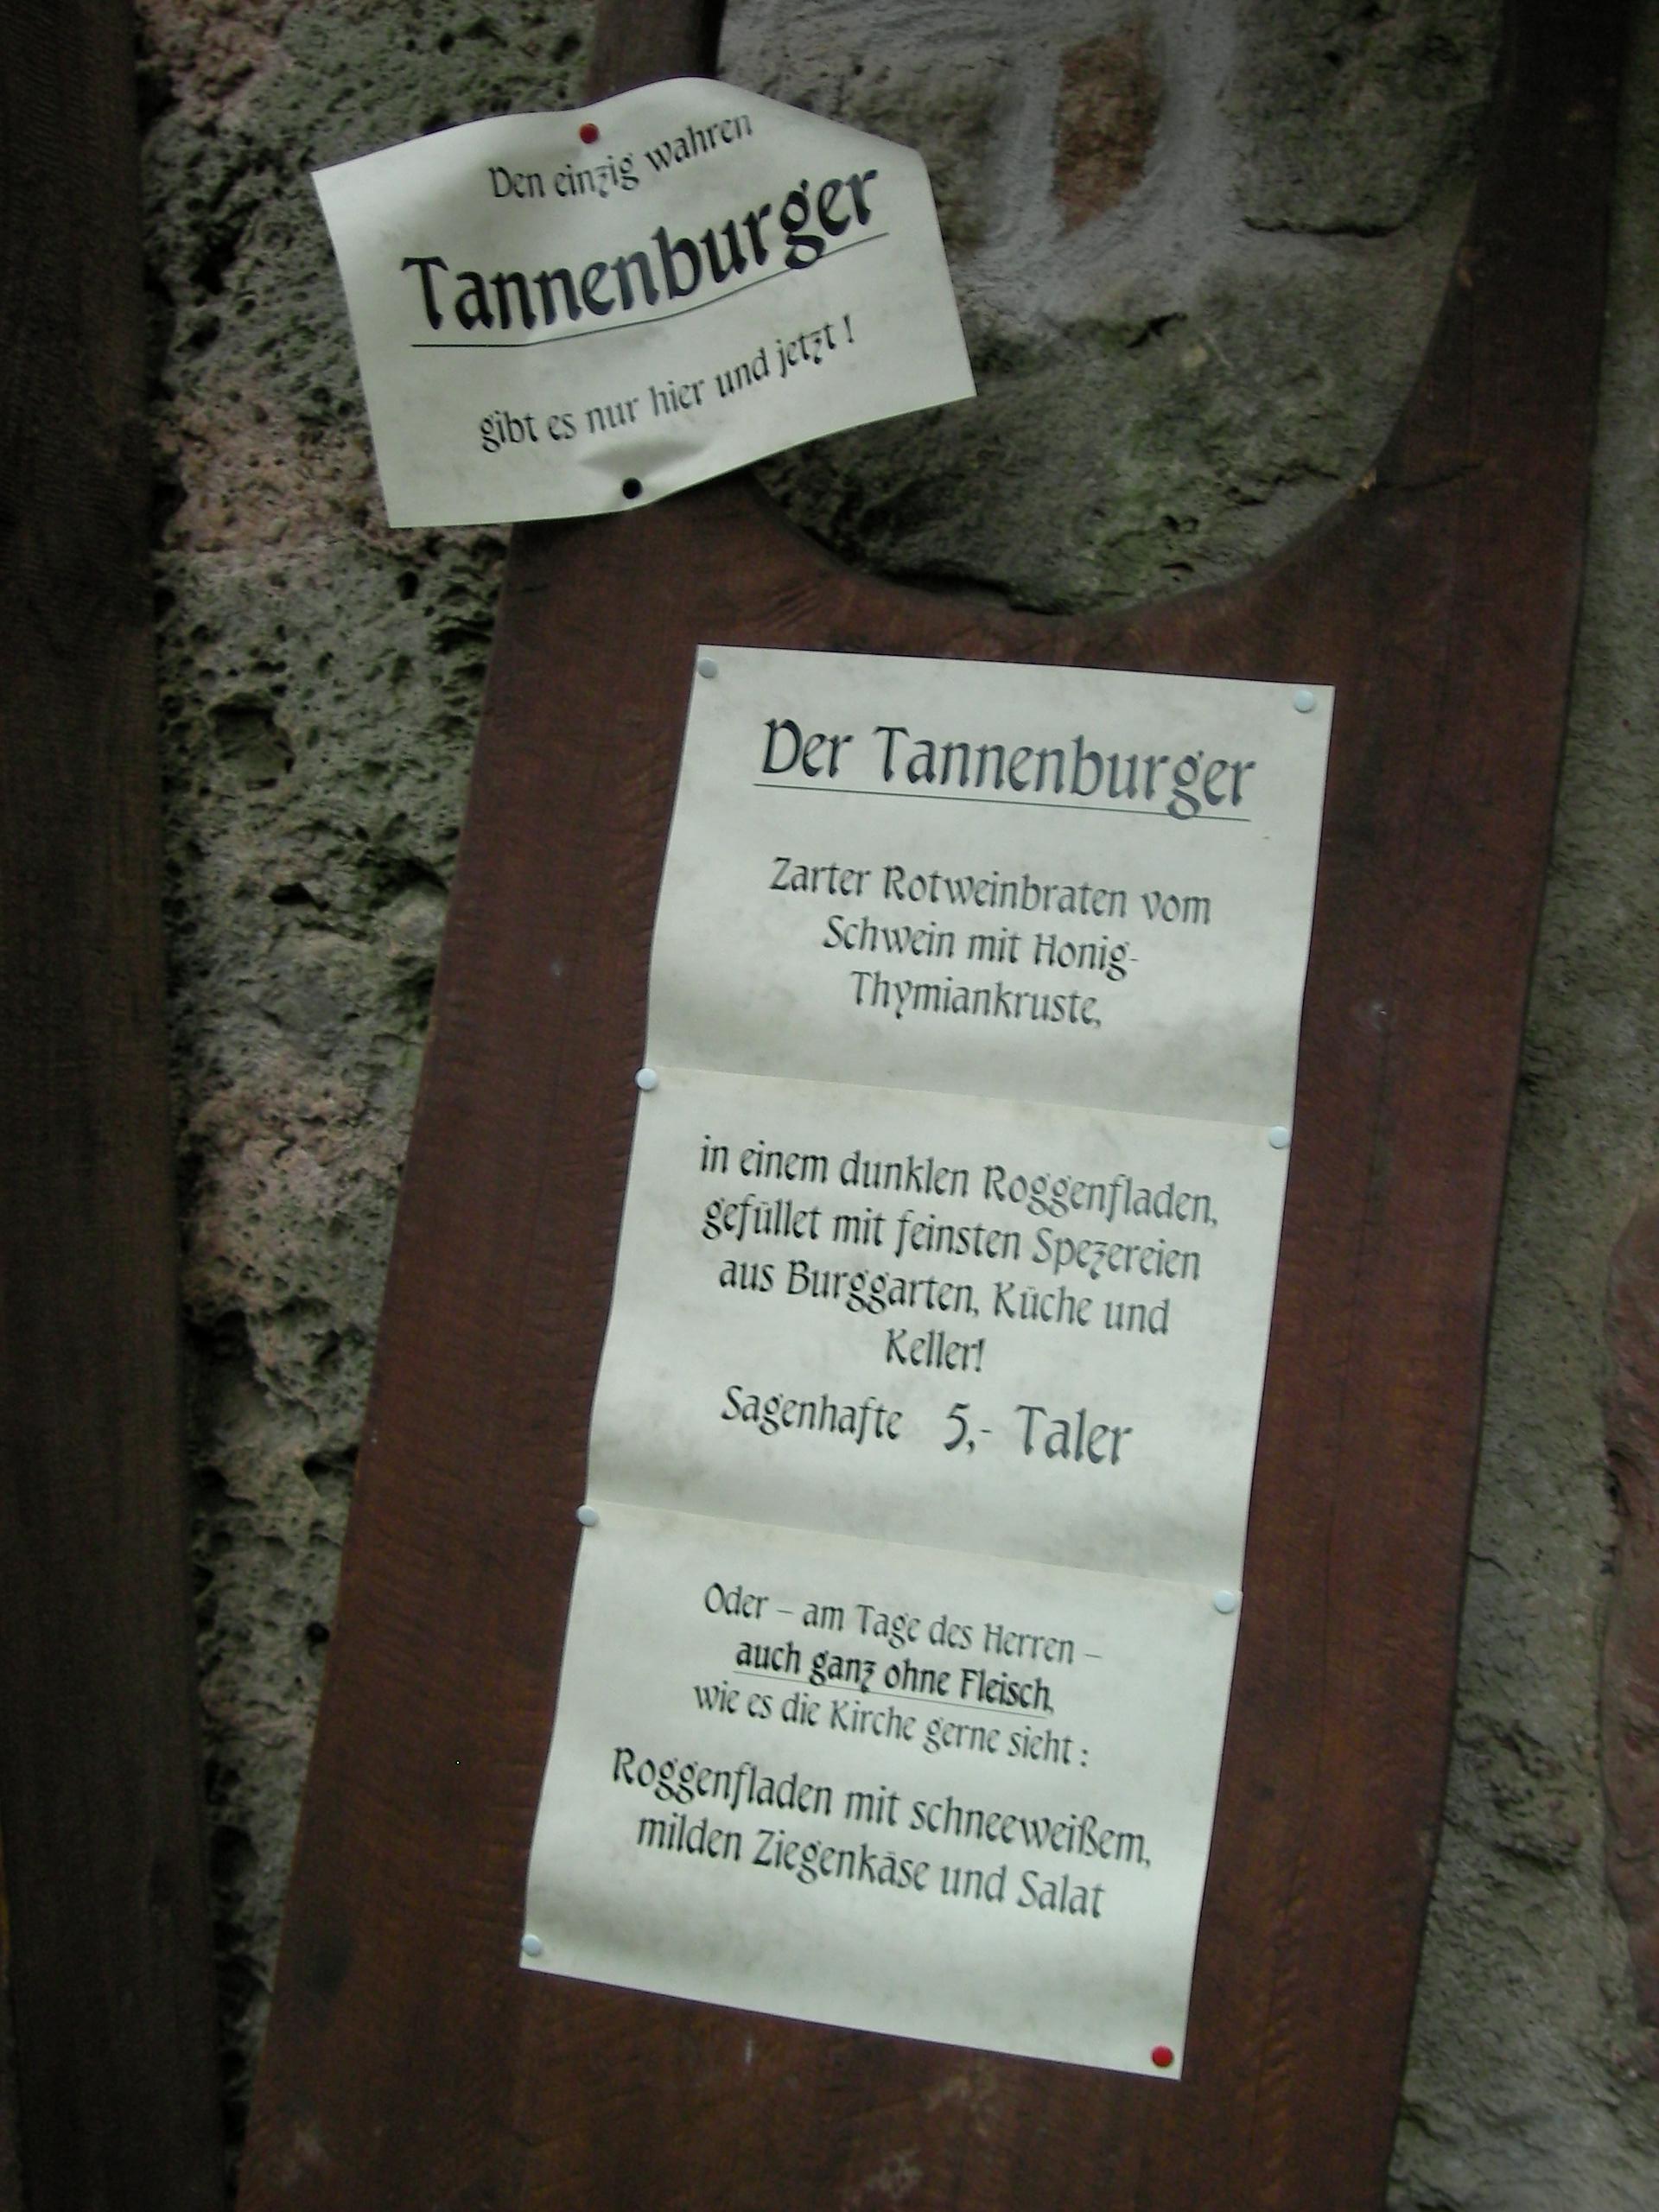 Den einzig wahren
Tannenburger
gibt es nur hier und jetzt !
Der Tannenburger
Zarter Rotweinbraten vom
Schwein mit Honig-
Thymiankruste,
in einem dunklen Roggenfladen,
gefüllet mit feinsten Spezereien
aus Burggarten, Küche und
Keller!
Sagenhafte 5,- Taler
Oder – am Tage des Herren –
auch ganz ohne Fleisch,
wie es die Kirche gerne sieht :
Roggenfladen mit schneeweißem,
milden Ziegenkäse und Salat